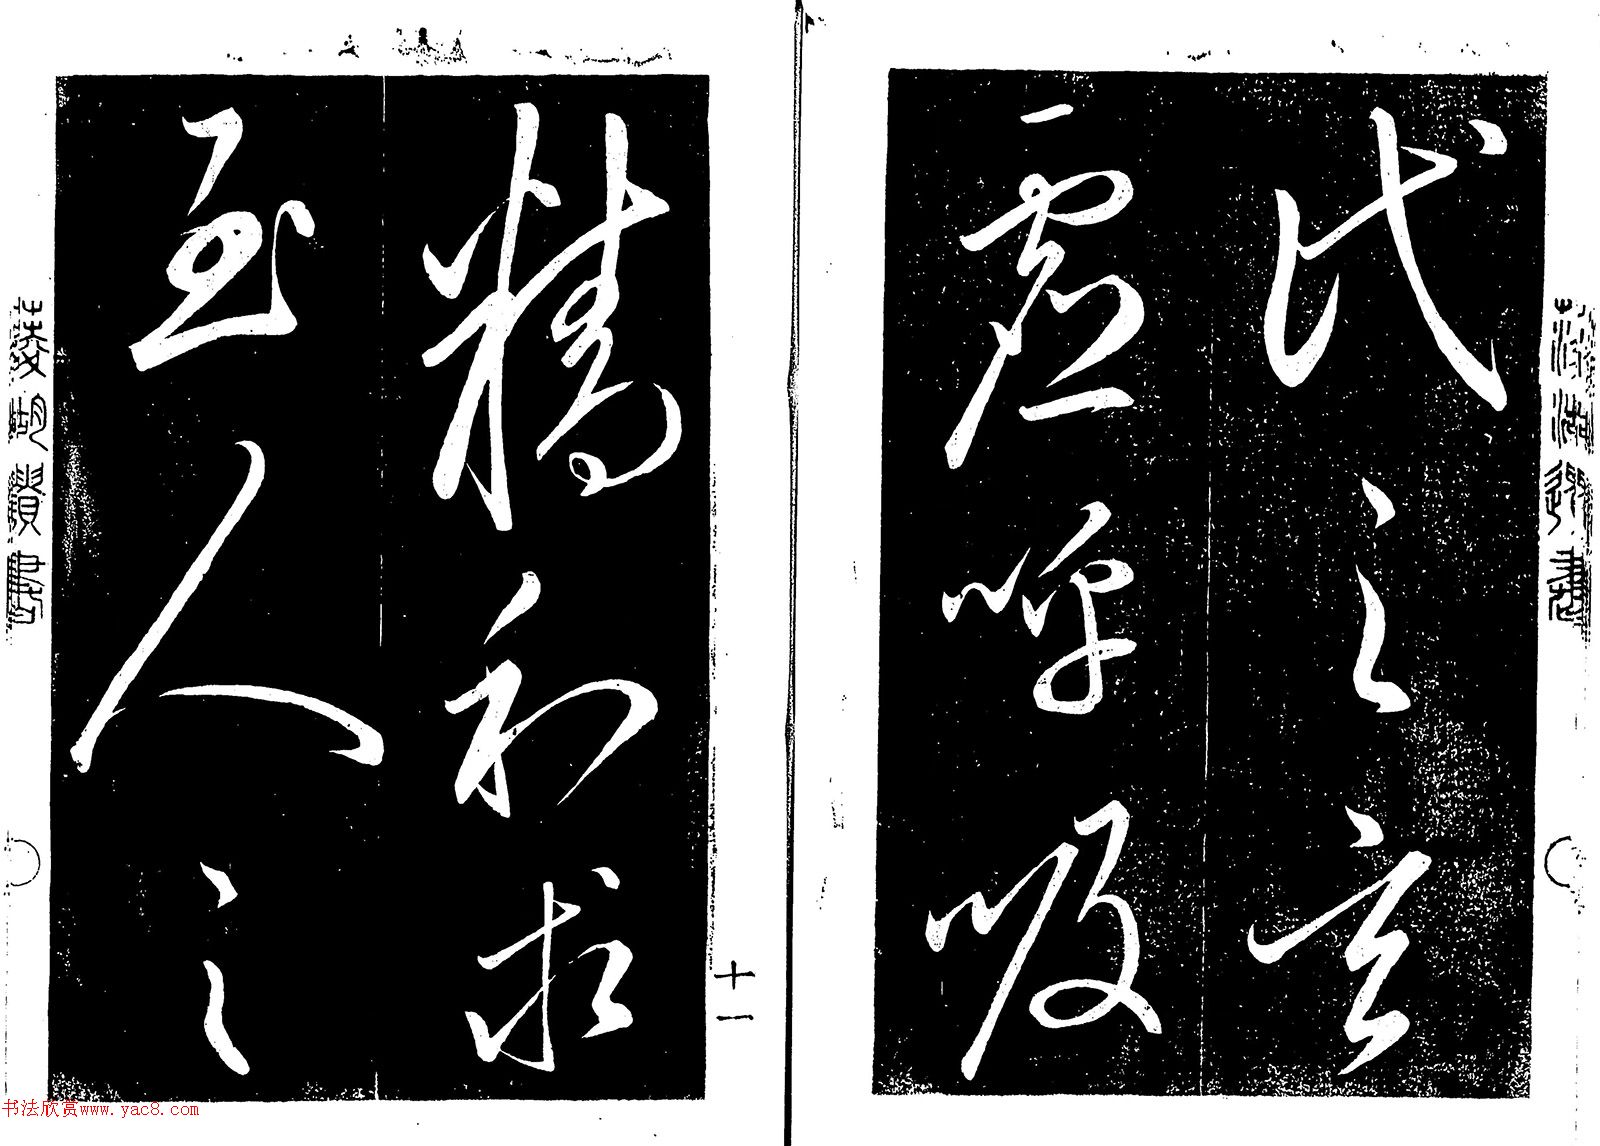 氏之玄
虚呼吸
精和求
至人之
十一
书法欣赏www.yac8.com